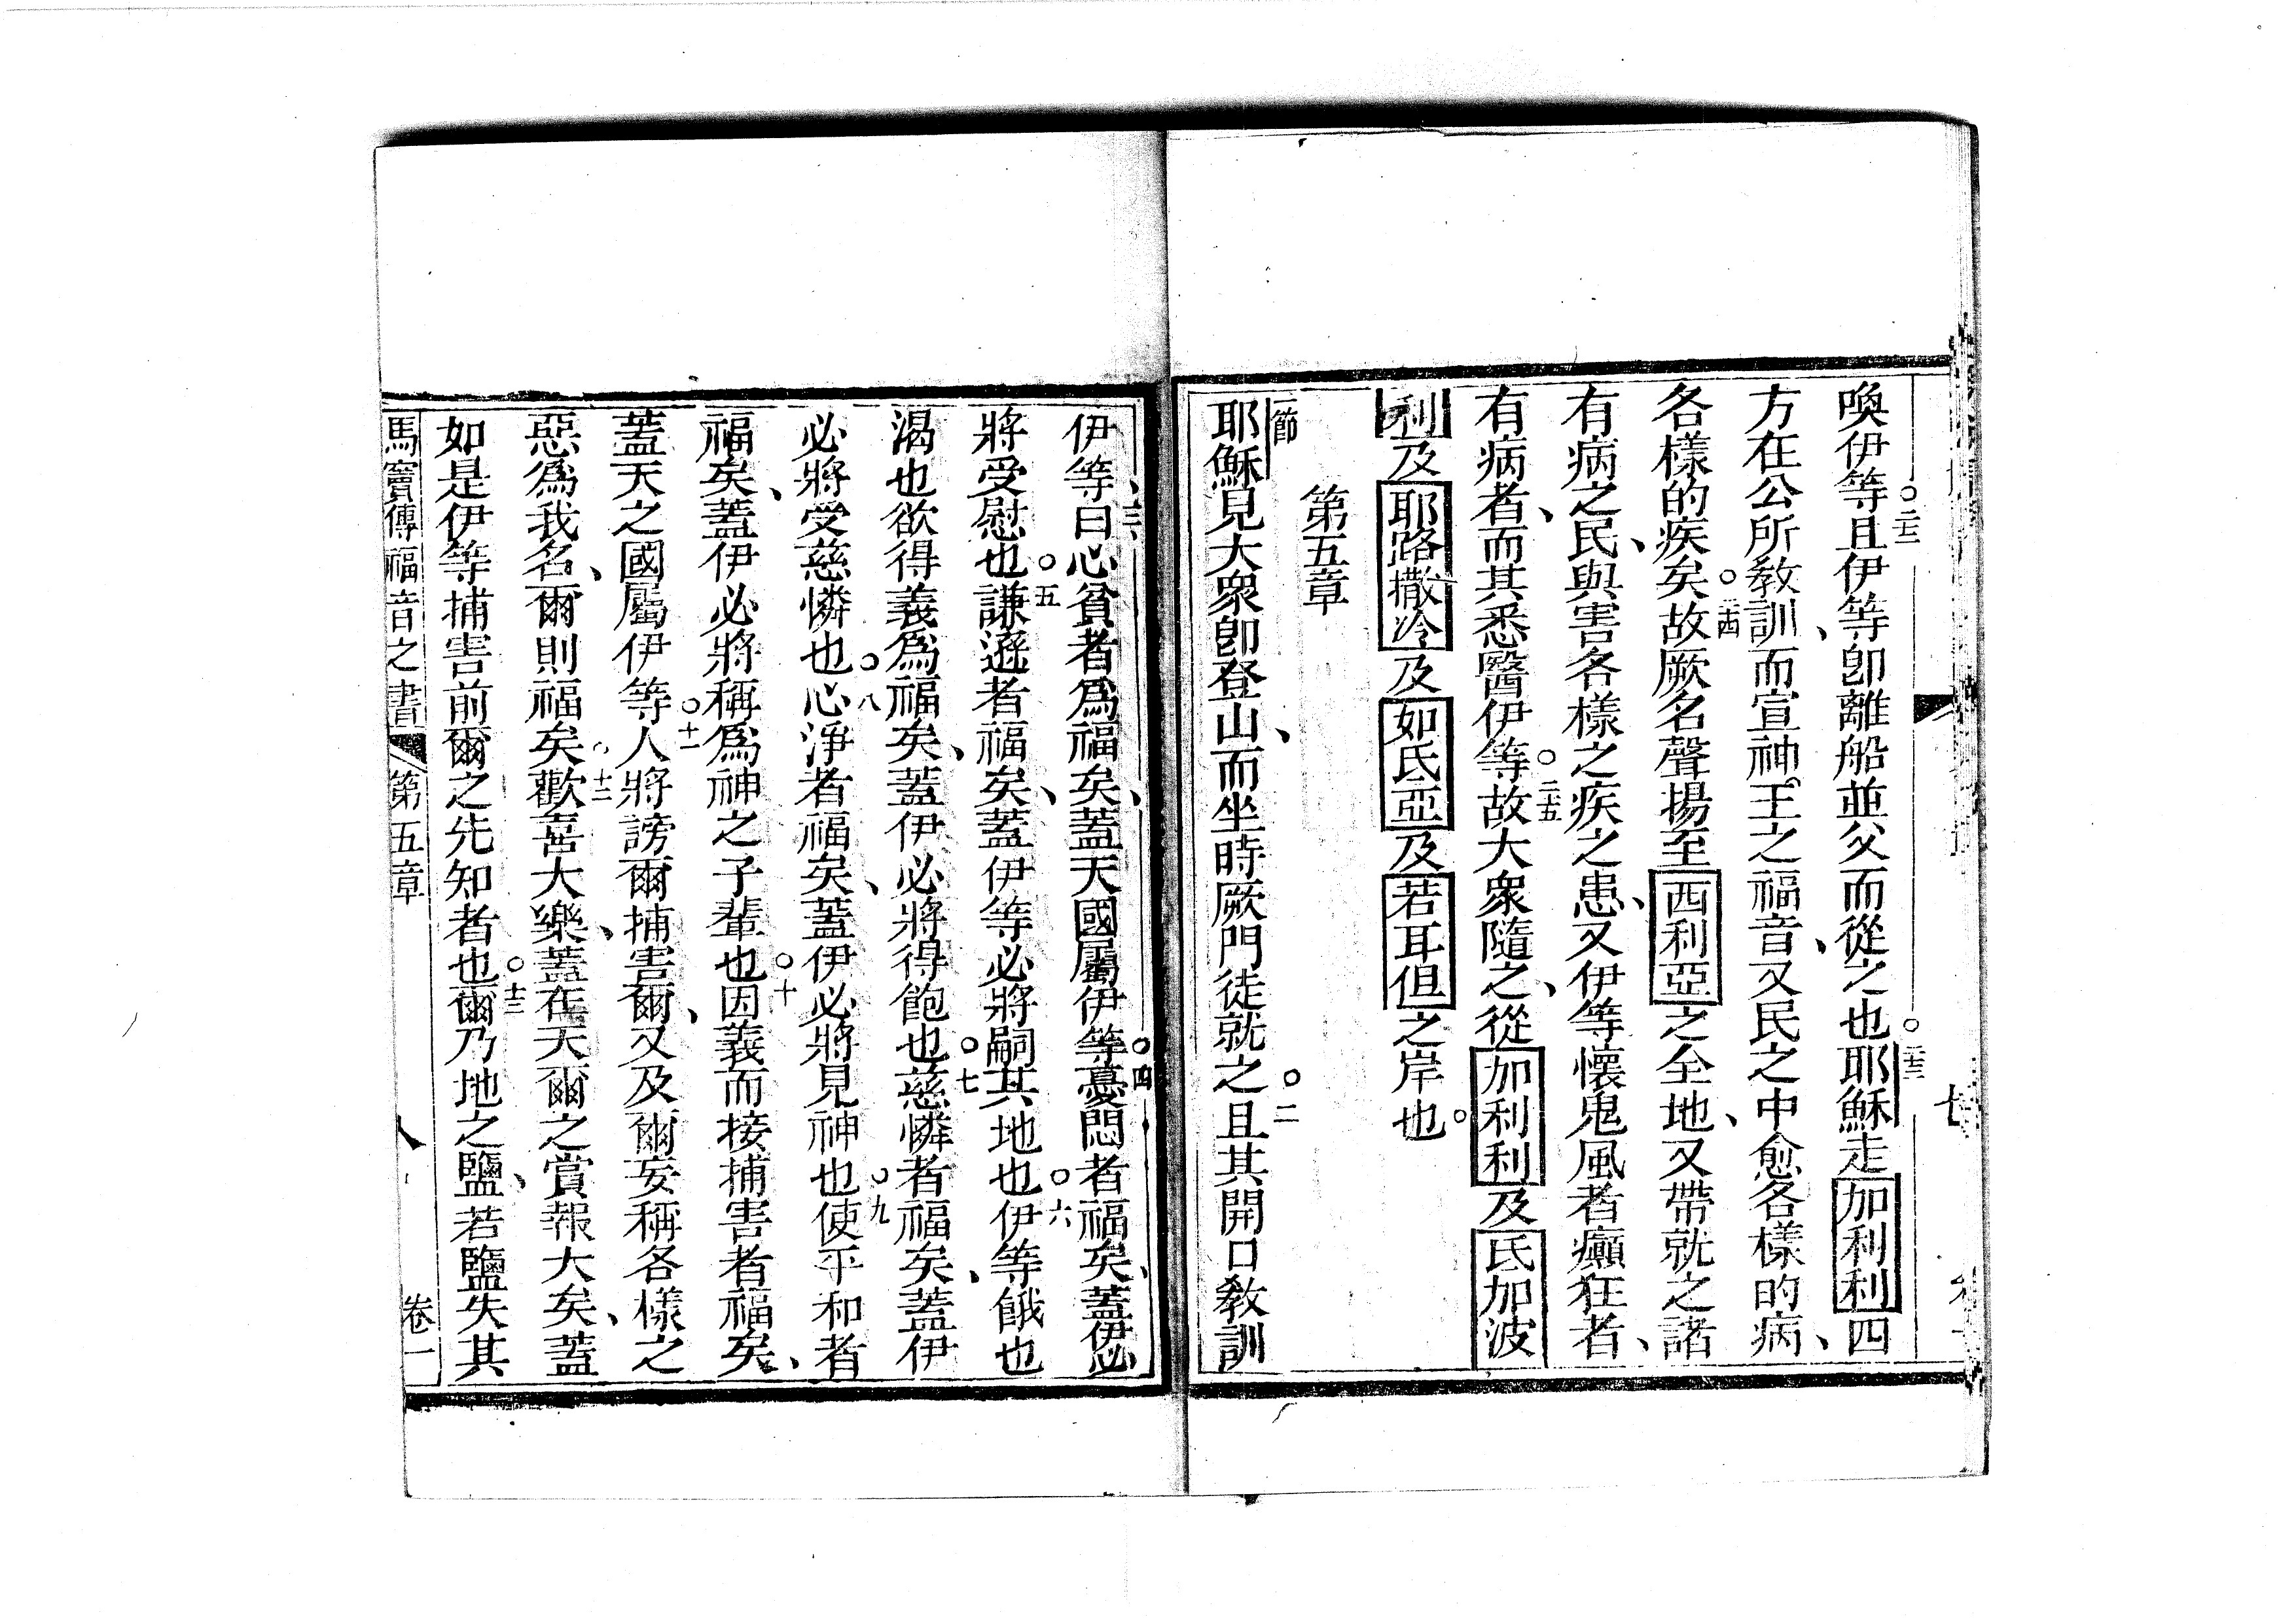 喚伊等且伊等卽離船並父而從之也耶穌走加利利四
方在公所敎訓而宣神王之福音又民之中愈各樣的病
各樣的疾矣故厥名聲揚至西利亞之全地又帶就之諸
有病之民與害各樣之疾之患又伊等懷鬼風者癲狂者
有病者而其悉醫伊等故大衆隨之從加利利及氐加波
利及耶路撒冷及如氐亞及若耳但之岸也
第五章
一節
耶穌見大衆卽登山而坐時厥門徒就之且其開口敎訓
伊等曰心貧者爲福矣蓋天國屬伊等憂悶者福矣蓋伊必
將受慰也謙遜者福矣蓋伊等必將嗣其地也伊等餓也
渴也欲得義爲福矣蓋伊必將得飽也慈憐者福矣蓋伊
必將受慈憐也心淨者福矣蓋伊必將見神也使平和者
福矣蓋伊必將稱爲神之子輩也因義而接捕害者福矣
蓋天之國屬伊等人將謗爾捕害爾又及爾妄稱各樣之
惡爲我名爾則福矣歡喜大樂蓋在天爾之賞報大矣蓋
如是伊等捕害前爾之先知者也爾乃地之鹽若鹽失其
馬竇傳福音之書 第五章 八 卷一